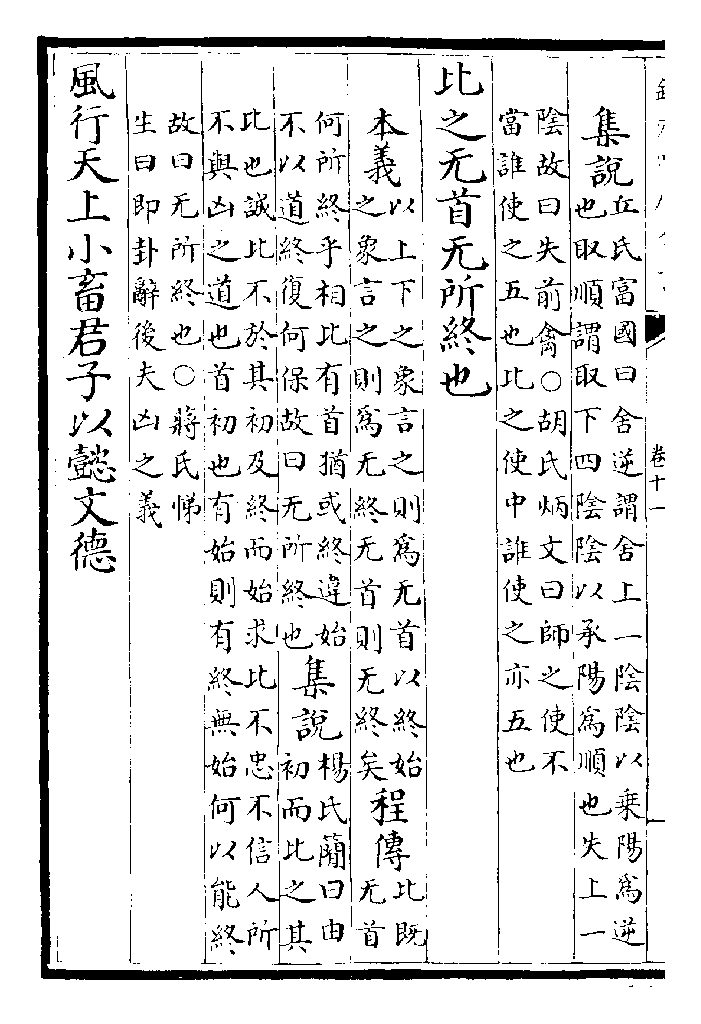 集說丘氏富國曰舍逆謂舍上一陰陰以乗陽爲逆
也取順謂取下四陰陰以承陽爲順也失上一
陰故曰失前禽○胡氏炳文曰師之使不
當誰使之五也比之使中誰使之亦五也
比之无首无所終也
本義以上下之象言之則爲无首以終始
之象言之則爲无終无首則无終矣程傳比既
无首
何所終乎相比有首猶或終違始
不以道終復何保故曰无所終也集說楊氏簡曰由
初而比之其
比也誠比不於其初及終而始求比不忠不信人所
不與凶之道也首初也有始則有終無始何以能終
故曰无所終也○蔣氏悌
生曰即卦辭後夫凶之義
風行天上小畜君子以懿文德
卷十一